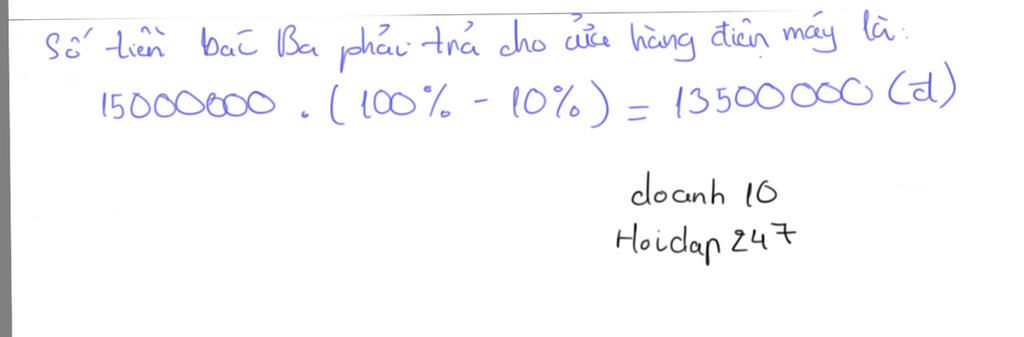 Số tiền bác Ba phải trả cho cửa hàng điện máy là:
15000000 . (100% - 10%) = 13500000 (đ)
doanh 10
Hoidap 247